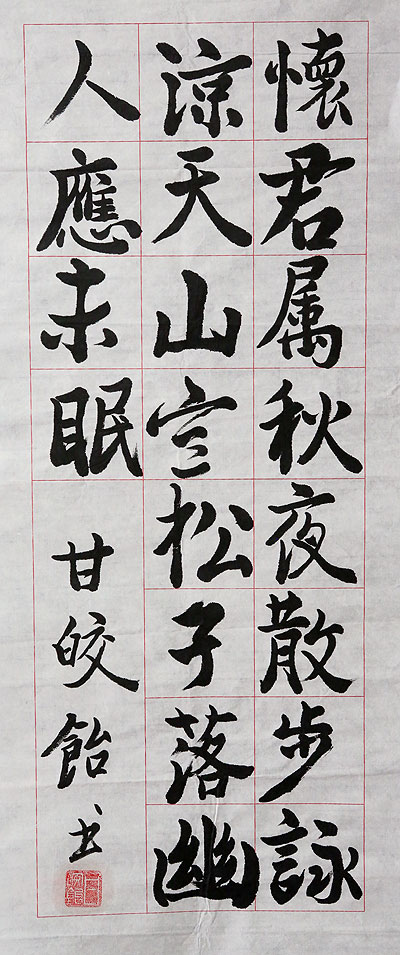 懷君属秋夜散步詠
涼天山空松子落幽
人應未眠
甘皎飴书